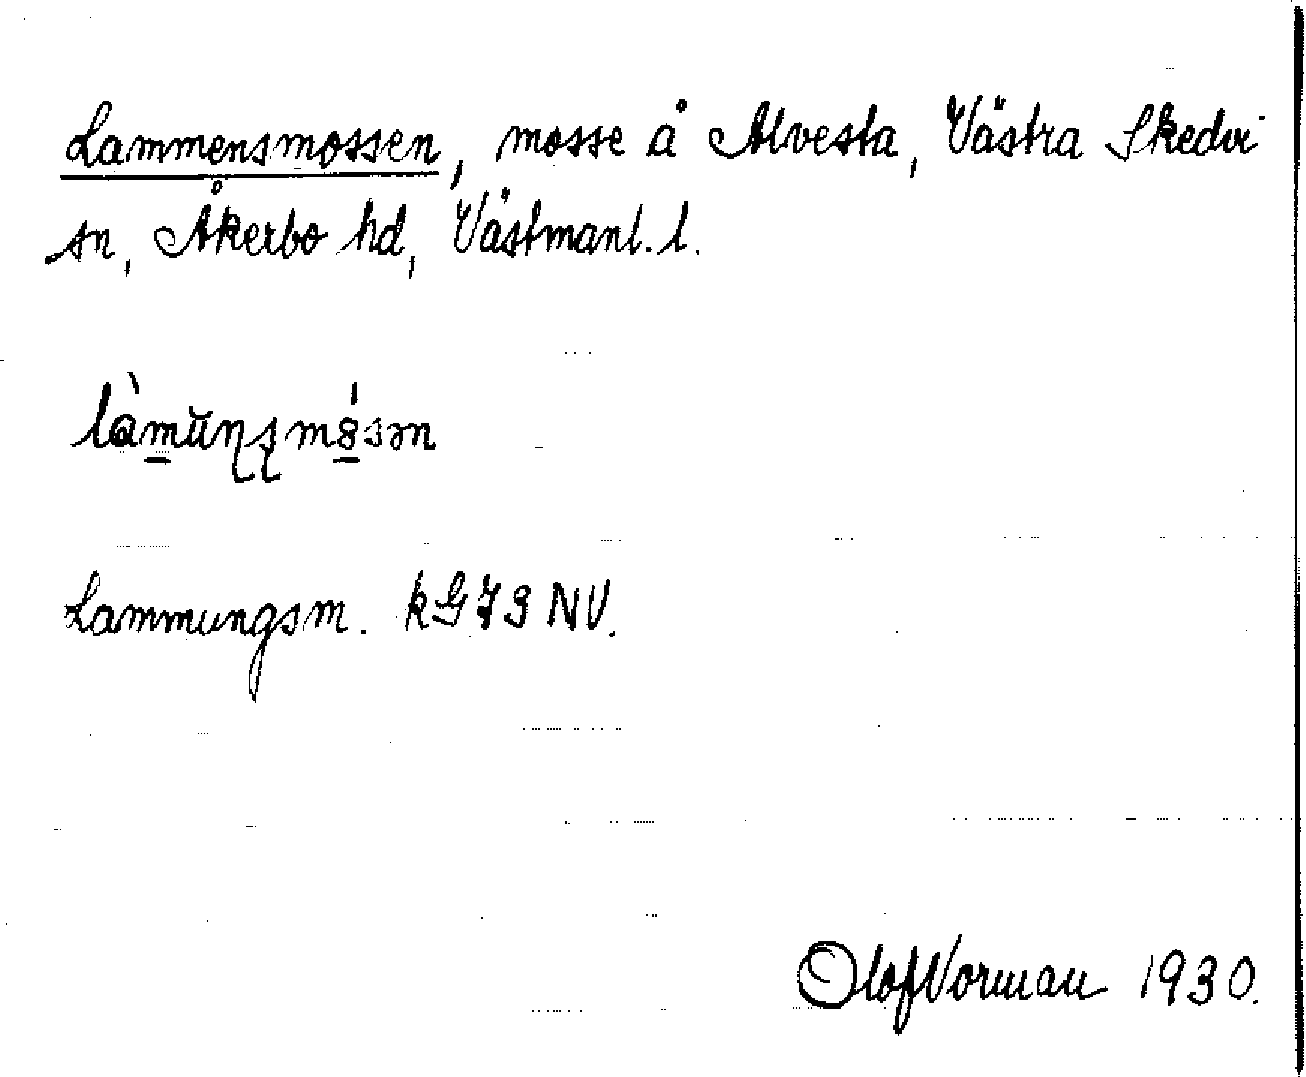 Lammensmossen, mosse å Alvesta, Västra Skedvi
sn, Åkerbo hd, Västmanl. l.
Lammungsm. kG73 NV.
Olof Vorman 1930.